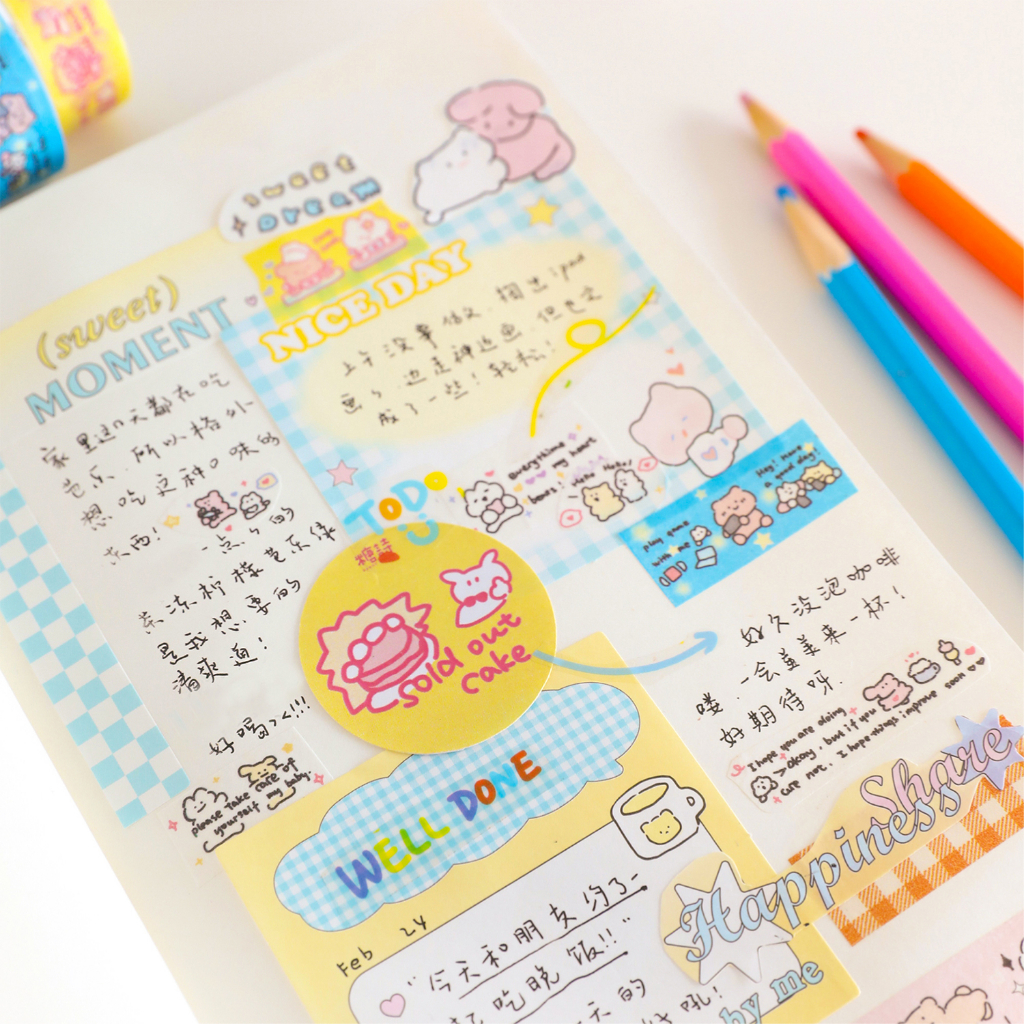 sweet
DREAM
(sweet)
MOMENT
家里这几天都在吃
芭乐，所以格外
想吃这种口味的
东西！
一点点的
茶冻柠檬芭乐绿
是我想要的
清爽道！
好喝
please take care of
yourself my baby.
NICE DAY
上午没事做，掏出ipad
画了，边走神边画，但也完
成了一些！轻松！
TODO
Everything
my heart
Hey! Have
a good day!
play game
with me
糖詩
sold out
cake
好久没泡咖啡
喽，一会美美来一杯！
好期待呀.
I hope you are doing
okay, but if you
are not, I hope things improve soon
WELL DONE
Feb 24
“今天和朋友约了一
起吃晚饭!!”
天的
Share
Happiness
by me